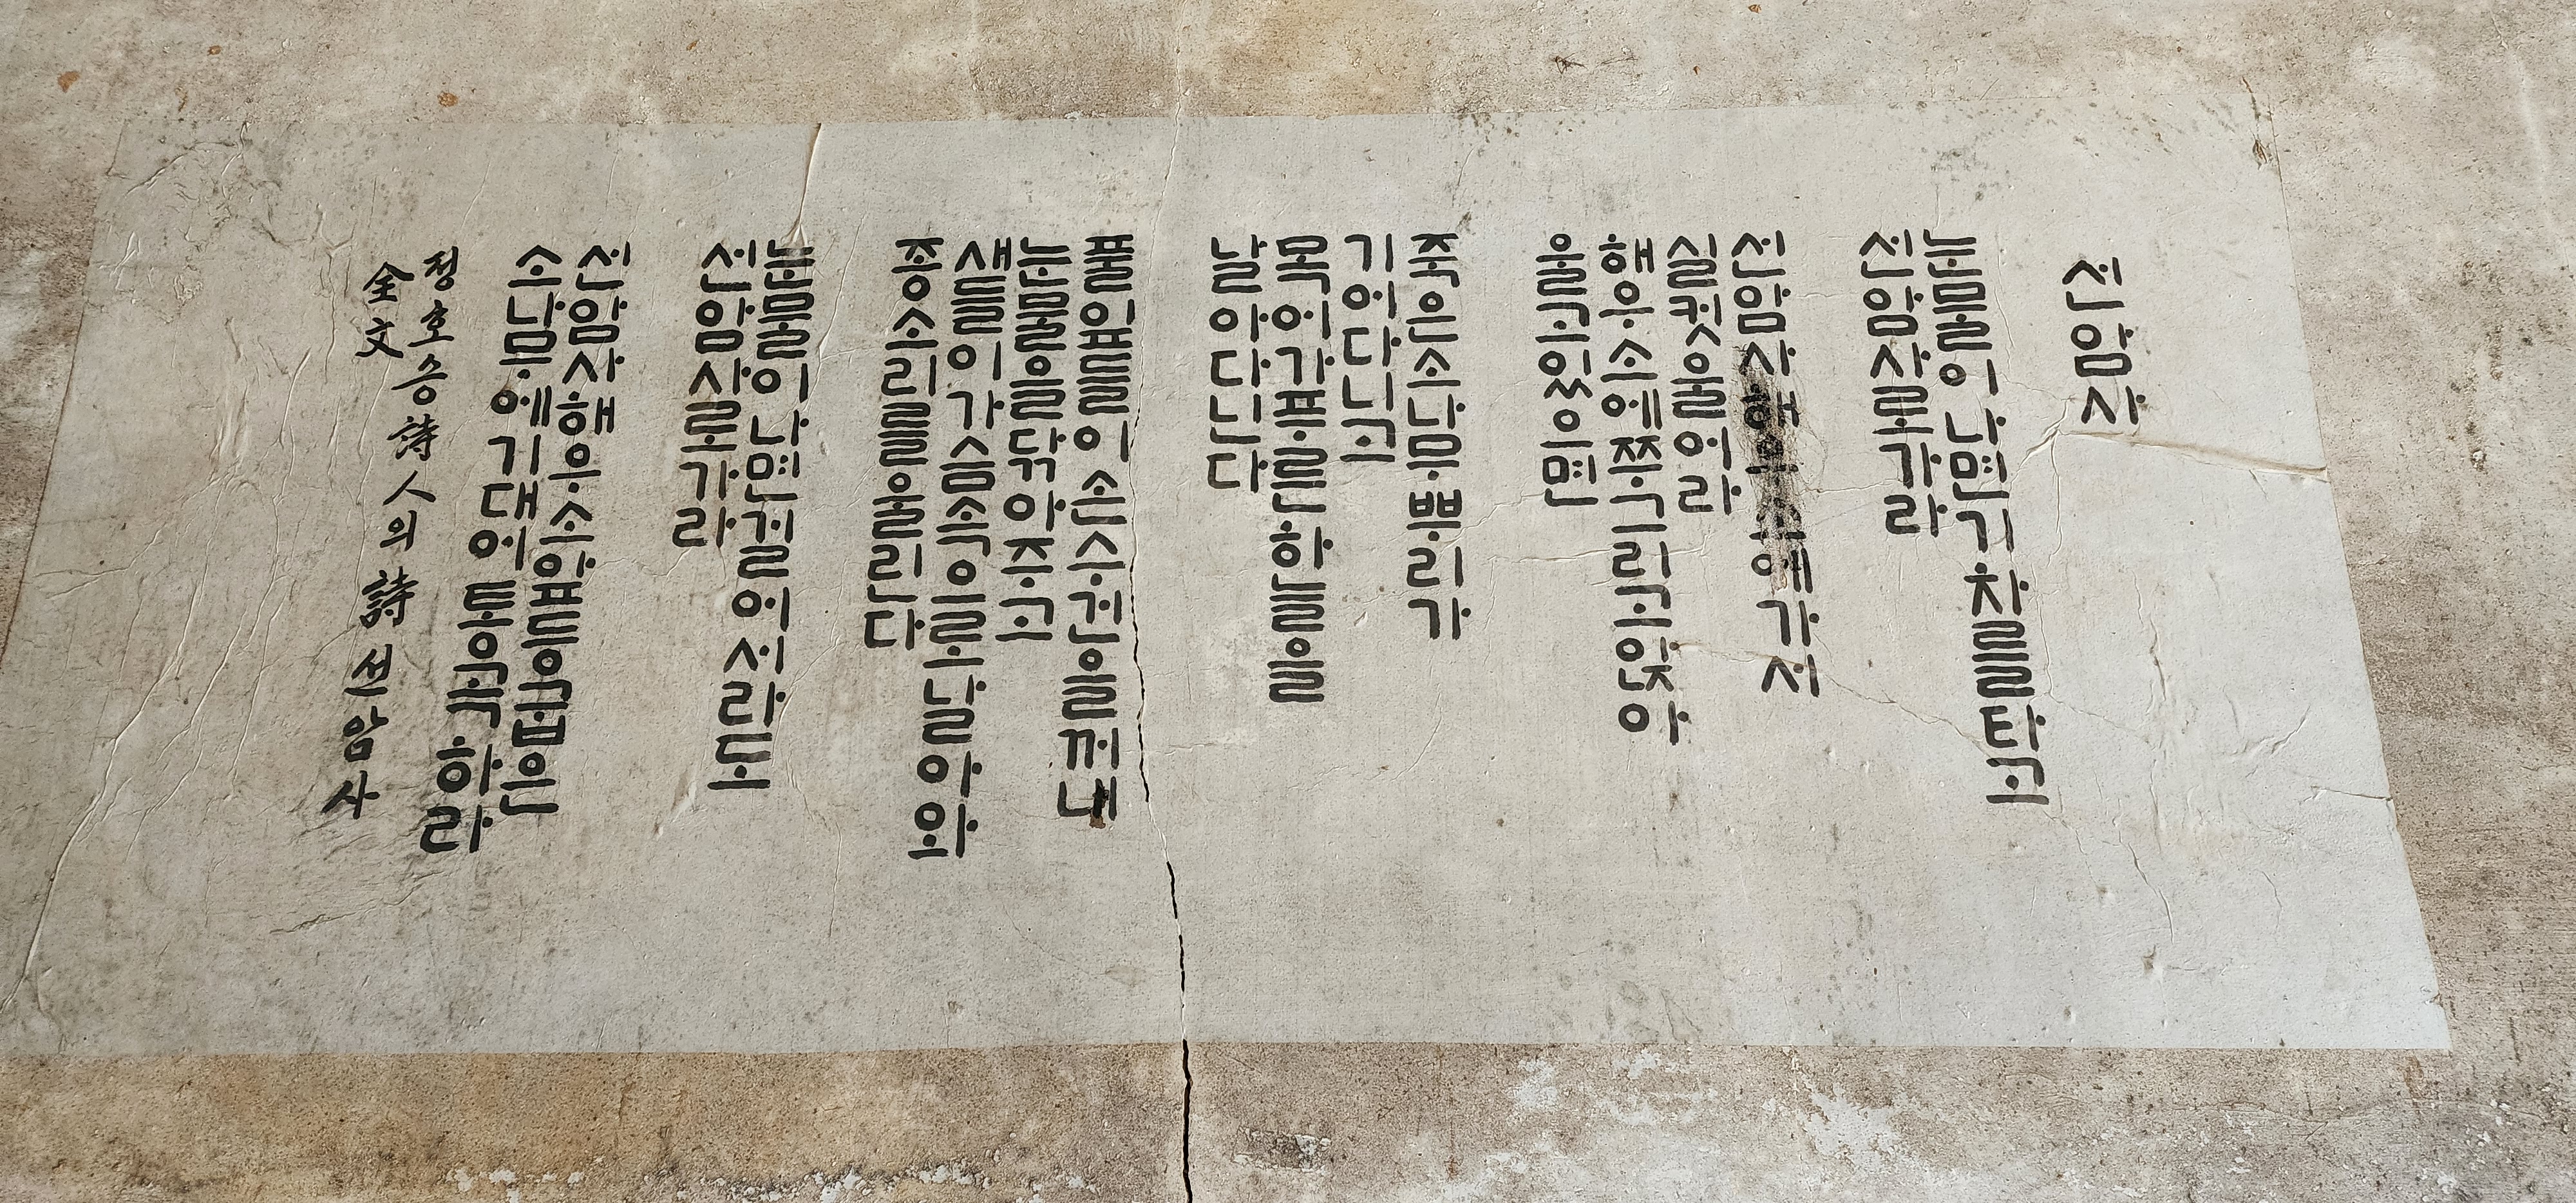 선암사
눈물이나면기차를타고
선암사로가라
선암사해우소에가서
실컷울어라
해우소에쭈그리고앉아
울고있으면
죽은소나무뿌리가
기어다니고
목어가푸른하늘을
날아다닌다
풀잎들이손수건을꺼내
눈물을닦아주고
새들이가슴속으로날아와
종소리를울린다
눈물이나면걸어서라도
선암사로가라
선암사해우소앞등굽은
소나무에기대어통곡하라
정호승詩人의詩선암사
全文